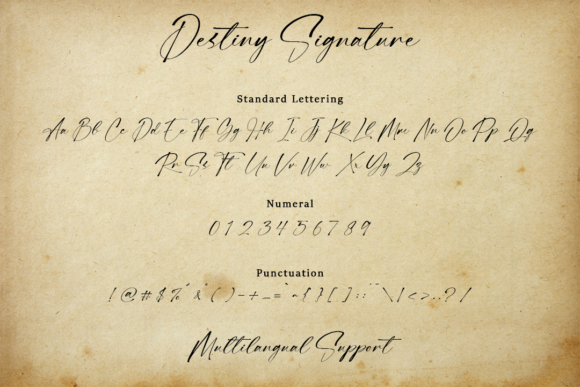 Destiny Signature
Standard Lettering
Aa Bb Cc Dd Ee Ff Gg Hh Ii Jj Kk Ll Mm Nn Oo Pp Qq
Rr Ss Tt Uu Vv Ww Xx Yy Zz
Numeral
0 1 2 3 4 5 6 7 8 9
Punctuation
! @ # $ % & ( ) - + _ = { } [ ] : ; \ | < > . . ? /
Multilangual Support